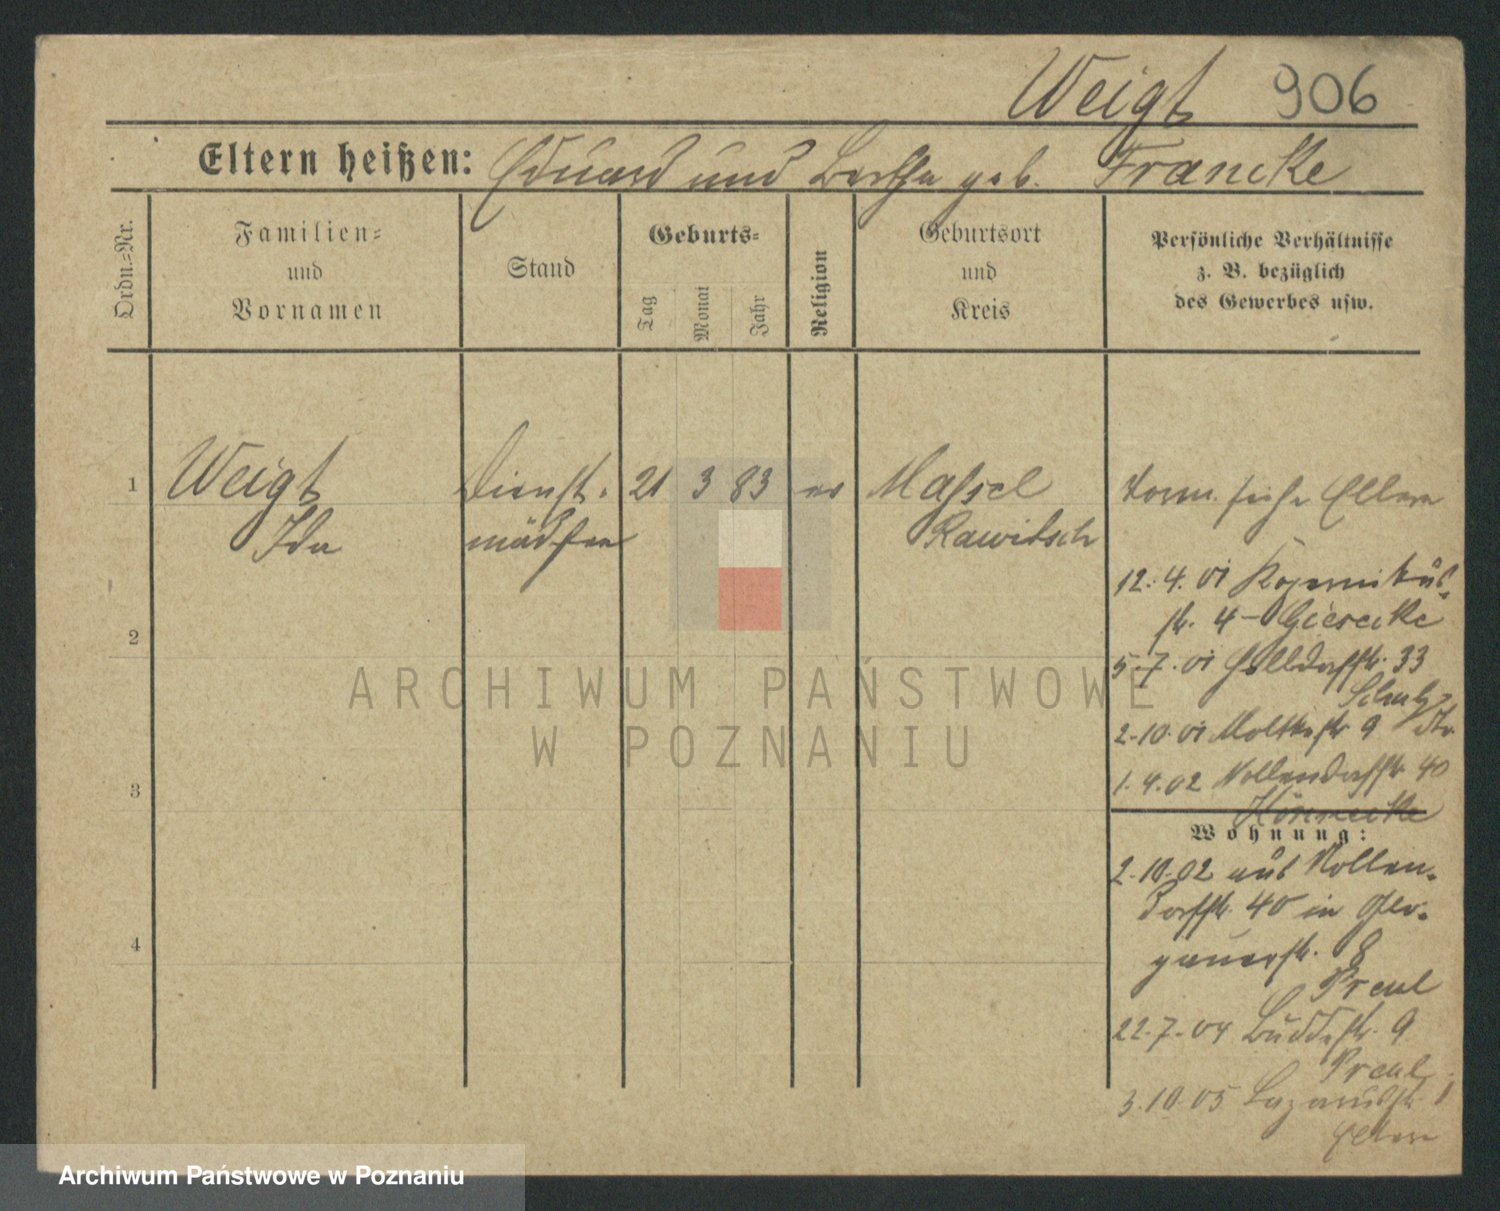 Weigt 906
Eltern heißen: Eduard und Bertha geb. Francke
Ordn.=Nr.
Familien=
und
Vornamen
Stand
Geburts=
Tag
Monat
Jahr
Religion
Geburtsort
und
Kreis
Persönliche Verhältnisse
z. B. bezüglich
des Gewerbes usw.
1 Weigt Dienst- 21 3 83 ev Massel
Ida mädchen Rawitsch
2
3
4
vorm. siehe Eltern
12.4.01 Kopernikus-
str. 4 - Giesecke
5.7.01 33
2.10.01 Moltkestr 9
1.4.02 Nollendorfstr 40
Hönnecke
Wohnung:
2.10.02 aus Nollen-
dorfstr. 40 in Glo-
gauerstr. 8
Preul
22.7.04 Buddestr. 9
Preul
3.10.05 Lazarusstr. 1
Eltern
ARCHIWUM PAŃSTWOWE
W POZNANIU
Archiwum Państwowe w Poznaniu